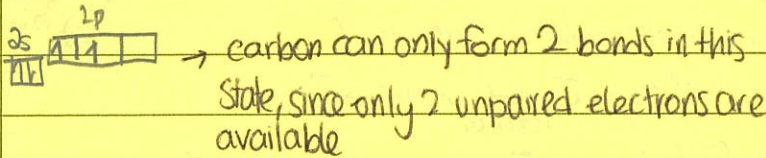 2p
2s
1 1
1r
→ carbon can only form 2 bonds in this
state, since only 2 unpaired electrons are
available